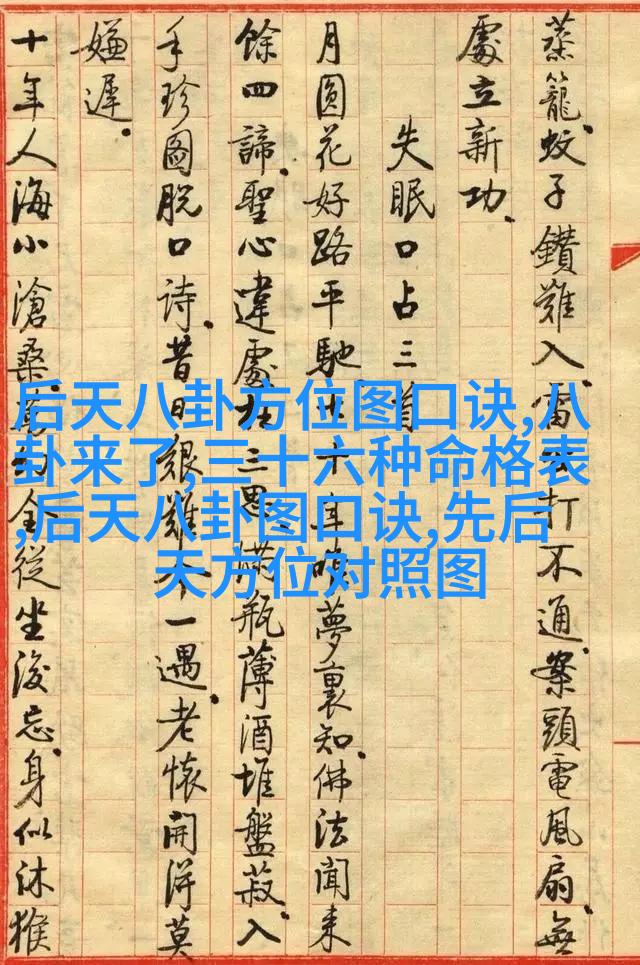 蒸籠。蚊子鑽難入。雷打不通。案頭電風扇。無
處立新功。
失眠口占三首
月圓花好路平馳。十年夢裏知。佛法聞来
餘四諦。聖心違處在三思。滿瓶薄酒堆盤菽。入
手珍圖脫口詩。昔日艱難今一遇。老懷開得莫
嫌遲。
十年人海小滄桑。金從坐後忘。身似沐猴
后天八卦方位图口诀,八
卦来了,三十六种命格表
,后天八卦图口诀,先后
天方位对照图